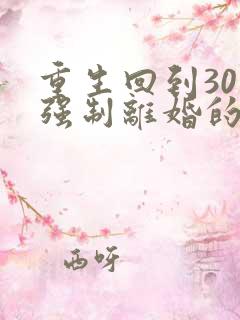 重生回到30
强制离婚的
西呀